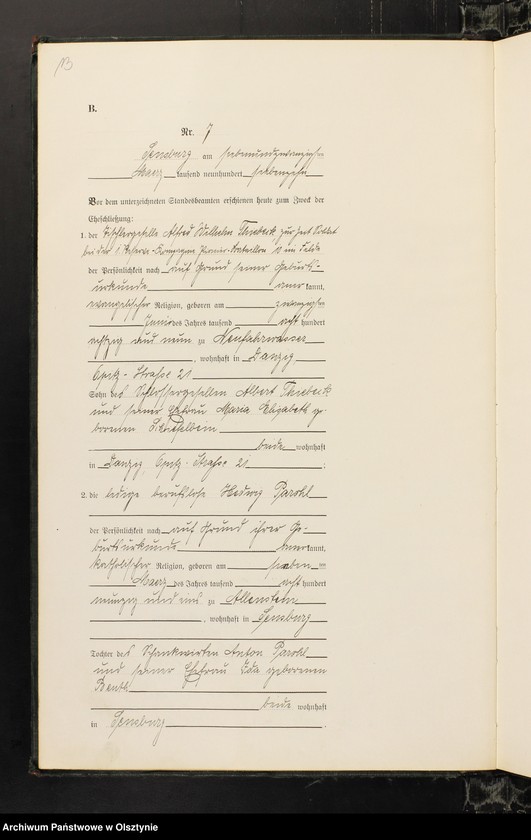 B.
Nr. 7
Sensburg am siebenundzwanzigsten
Maerz tausend neunhundert siebenzehn
Vor dem unterzeichneten Standesbeamten erschienen heute zum Zweck der
Eheschließung:
1. der Tischlergeselle Alfred Wilhelm Thiebeck zur Zeit Soldat
bei der 1 Reserve-Kompagnie Pionier-Bataillon im Felde
der Persönlichkeit nach auf Grund seiner Geburts-
urkunde anerkannt,
evangelischer Religion, geboren am zwanzigsten
Juni des Jahres tausend acht hundert
achtzig und neun zu Neufahrwasser
, wohnhaft in Danzig
Opitz-Strasse 21
Sohn des Schlossergesellen Albert Thiebeck
und seiner Ehefrau Maria Elisabeth ge-
borenen
beide wohnhaft
in Danzig, Opitz-Strasse 21 ;
2. die ledige berufslose Hedwig Parohl
der Persönlichkeit nach auf Grund ihrer Ge-
burtsurkunde anerkannt,
katholischer Religion, geboren am sieben
Maerz des Jahres tausend acht hundert
neunzig und eins zu Allenstein
, wohnhaft in Sensburg
Tochter des Schankwirten Anton Parohl
und seiner Ehefrau Ida geborenen
beide wohnhaft
in Sensburg .
Archiwum Państwowe w Olsztynie